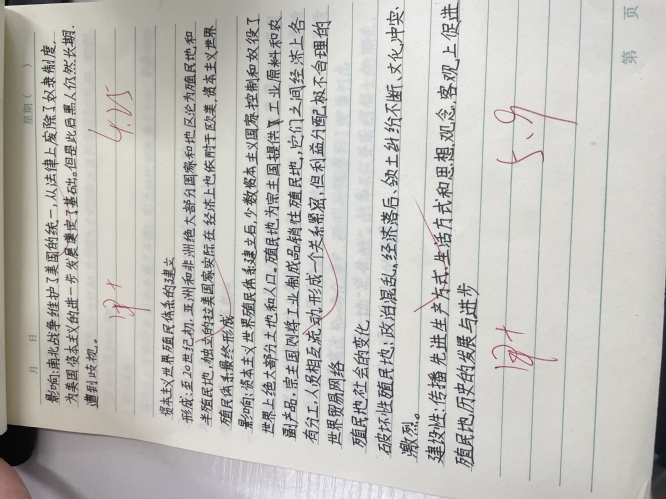 月 日 星期（ ）
影响:南北战争维护了美国的统一,从法律上废除了奴隶制度,
为美国资本主义的进一步发展奠定了基础。但是此后黑人仍然长期
遭到歧视。
4.25
资本主义世界殖民体系的建立
形成:至20世纪初,亚洲和非洲绝大部分国家和地区沦为殖民地和
半殖民地,独立的拉美国家实际在经济上也依附于欧美,资本主义世界
殖民体系最终形成
影响:资本主义世界殖民体系建立后,少数资本主义国家控制和奴役了
世界上绝大部分土地和人口。殖民地为宗主国提供了工业原料和农
副产品,宗主国则将工业制成品销往殖民地,它们之间经济上各
有分工,人员相互流动,形成一个关系紧密,但利益分配极不合理的
世界贸易网络
殖民地社会的变化
破坏性殖民地:政治混乱、经济落后、领土纠纷不断、文化冲突
激烈。
建设性:传播先进生产方式、生活方式和思想观念,客观上促进
殖民地历史的发展与进步
5.9
第 页